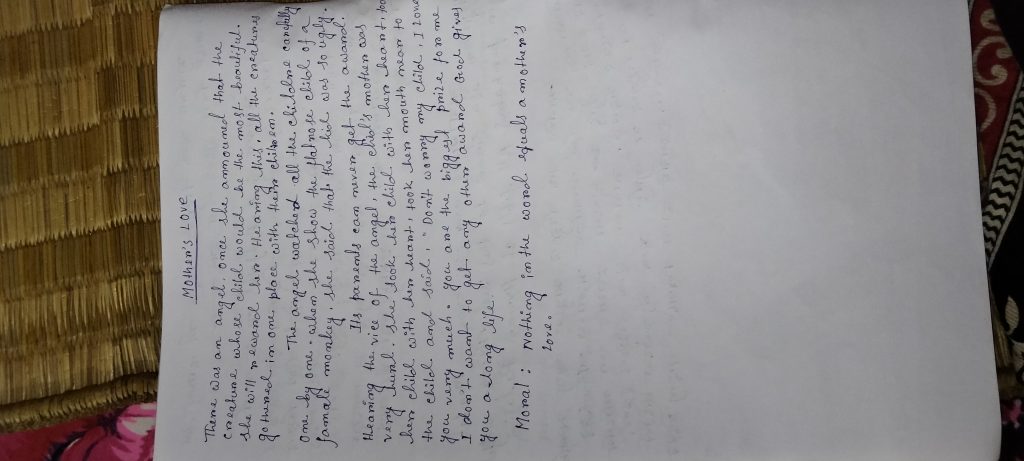 Mother's Love
There was an angel, once she announed that the
creature whose child would be the most beautiful.
she will reward her. Hearing this, all the creatures
gothered in one place with their chilren.
The angel watched all the childrne carefully
one by one. when she show the flatnose child of a
famale monkey, she said that the kid was so ugly.
Its parents can never get the award.
Hearing the vice of the angel, the child's mother was
very hurt. she took her child with her heart, too
her child with her heart, took her mouth near to
the child and said, "Don't worry my child, I love
you very much. you are the biggest prize for me
I don't want to get any other award God gives
you a long life.
Moral: Nothing in the word equals a mother's
love.